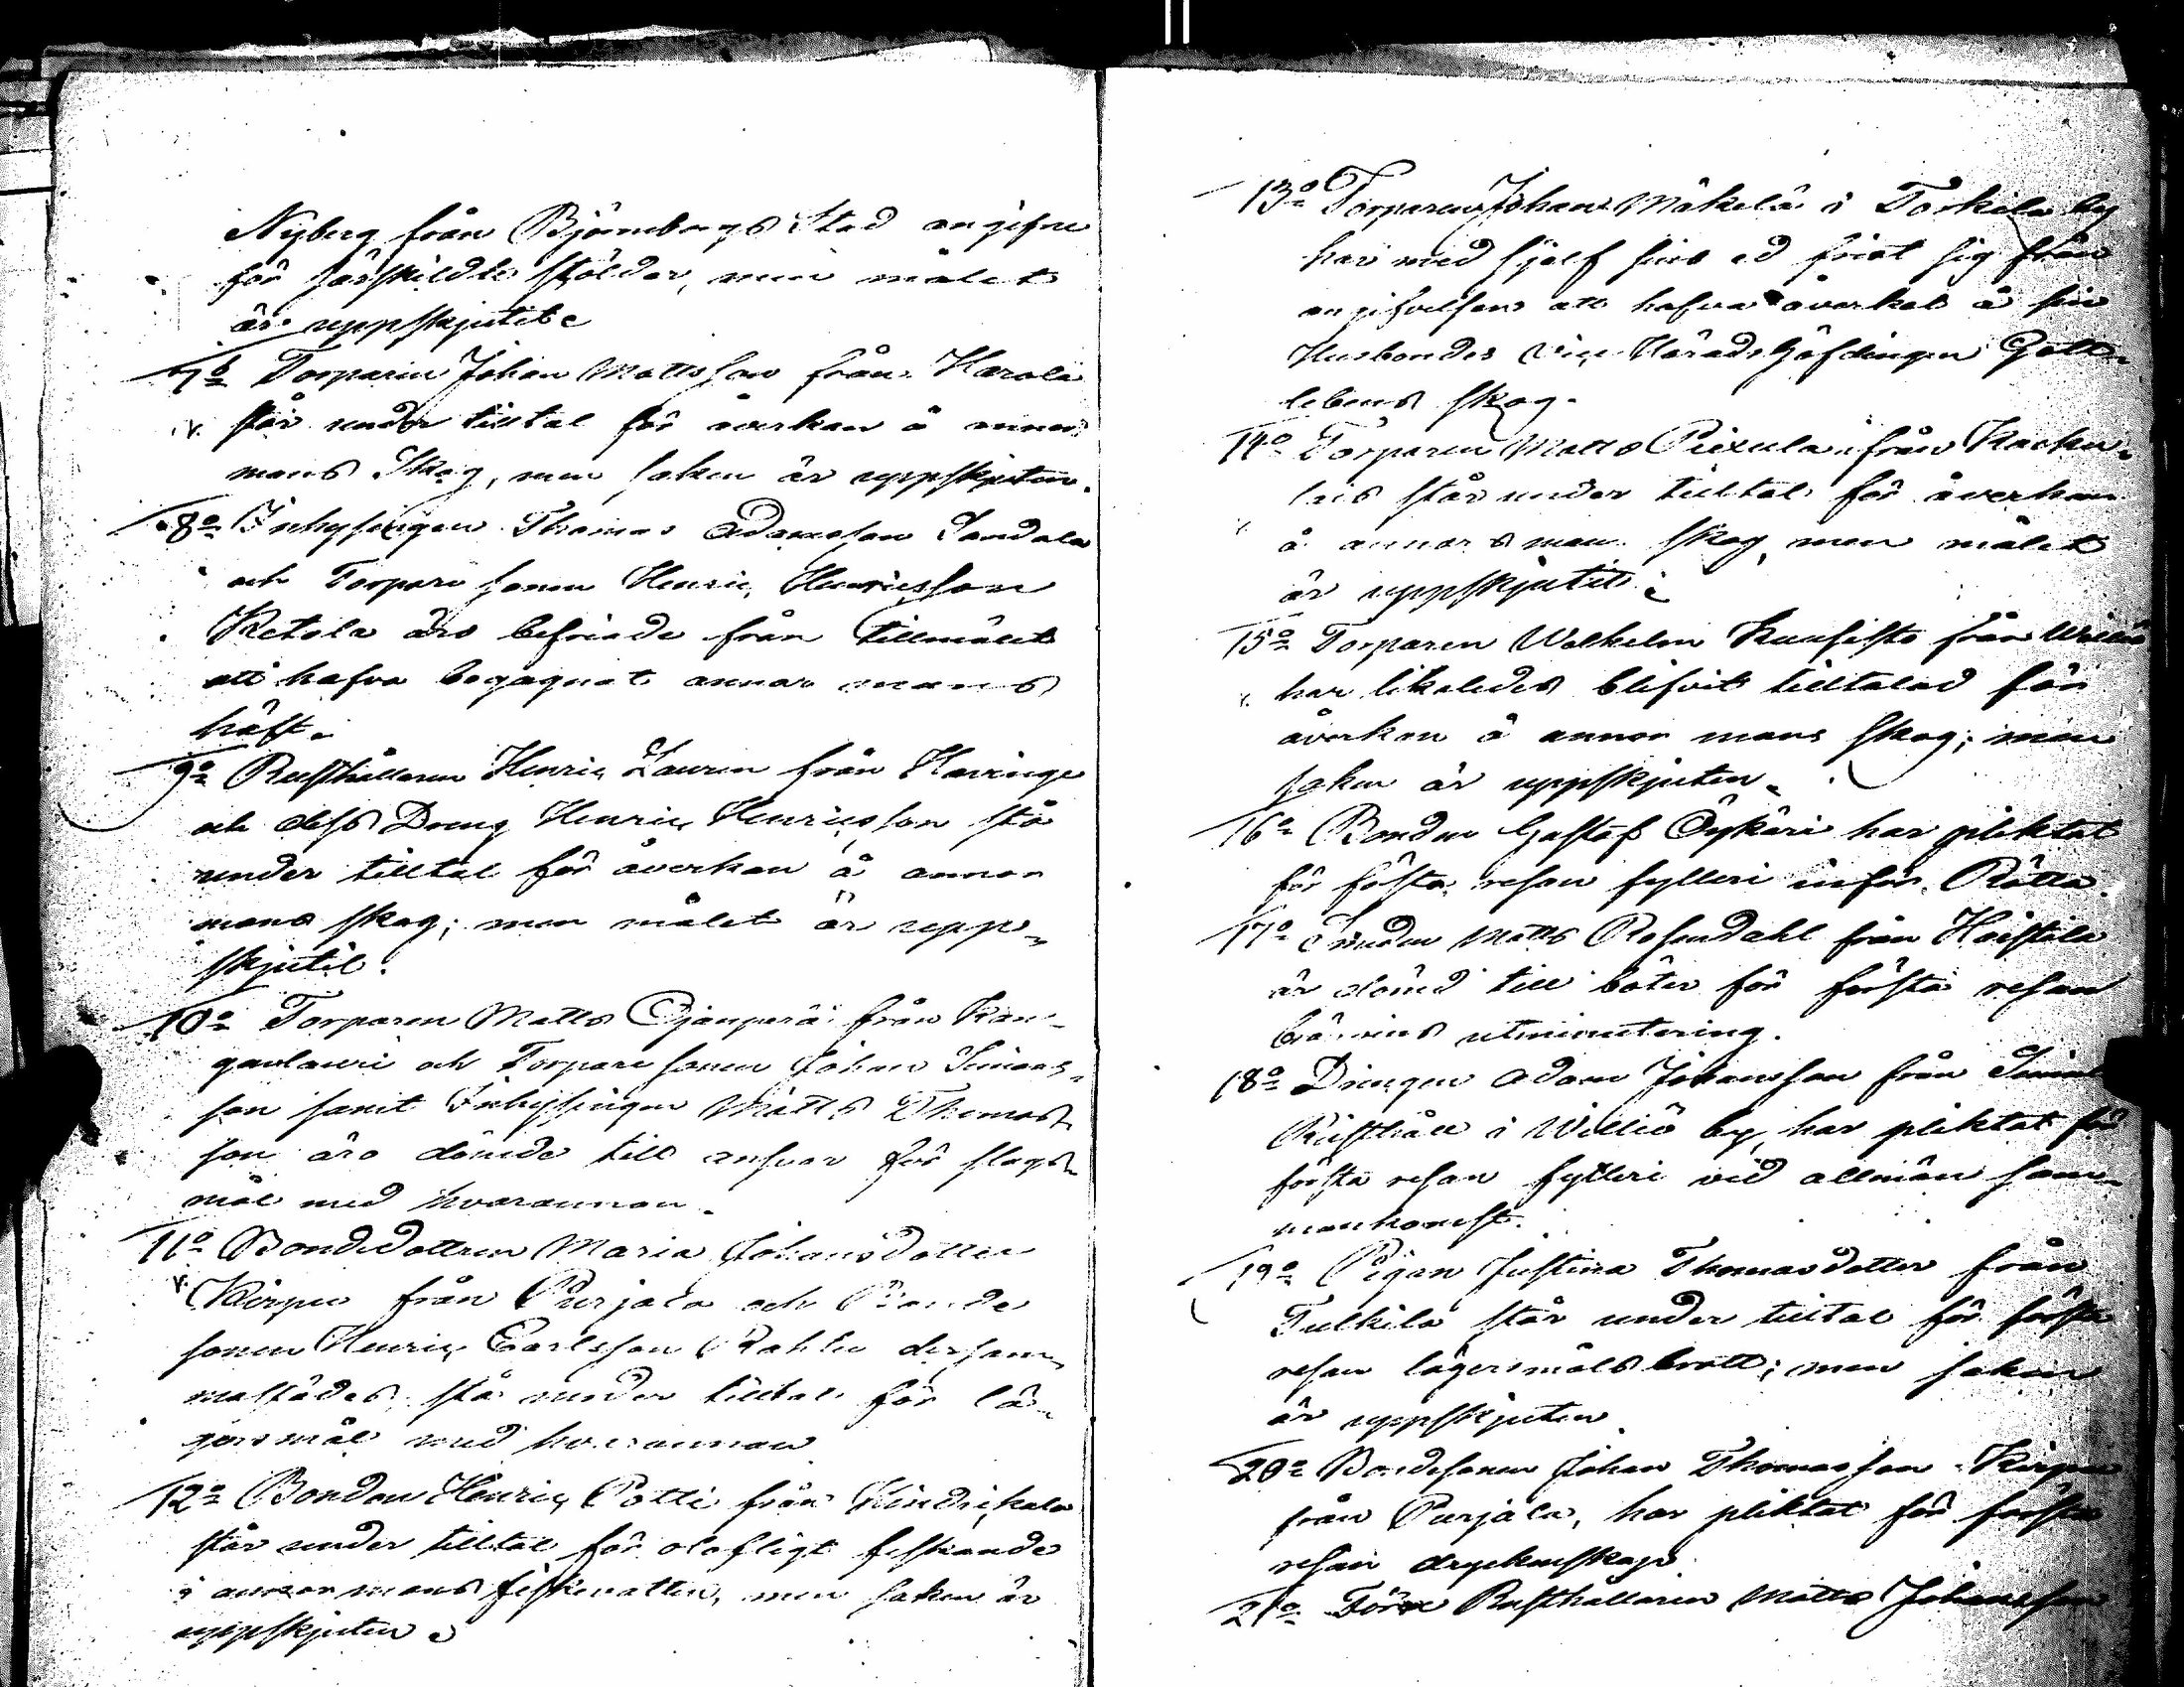 Nyberg från Björneborgs Stad angifne
för särskildte stölder, men målet
är uppskjutit.
7o Torparen Johan Mattsson från Harola
står under tilltal för åverkan å annor
mans Skog, men saken är uppskjuten.
8o Inhysingen Thomas Adamsson Sandala
och Torpare sonen Henric Henricsson
Ketola äro befriade från tillmälet
att hafva begagnat annar mans
häst.
9o Rusthållaren Henric Lauren från Havinge
och dess Dreng Henric Henricsson stå
under tilltal för åverkan å annor
mans skog; men målet är upp-
skjutit.
10o Torparen Matts Ojanperä från Kan-
gavlauri och Torpare sonen Johan Simons-
son samt Inhysingen Matts Thomas-
son äro dömde till ansvar för slags-
mål med hvarannan.
11o Bondedottren Maria Johansdotter
Kirpu från Purjala och Bonde
sonen Henric Carlsson dersam-
mastädes, stå under tilltal för lä-
gersmål med hvarannan
12o Bonden Henric Potti från
står under tilltal för olofligt fiskande
i annor mans fiskevatten, men saken är
uppskjuten.
13o Torparen Johan Mäkelä i Torkila by
har med sjelf sins ed friat sig från
angifvelsen att hafva åverkat å sin
Husbondes Vice Häradshöfdingen Gott-
lebens skog.
14o Torparen Matts från
står under tilltal för åverkan
å annors mans skog, men målet
är uppskjutit.
15o Torparen Wilhelm Kuusisto från Williö
har likaledes blifvit tilltalad för
åverkan å annor mans skog; men
saken är uppskjuten.
16o Bonden Gustaf Äykäri har pliktat
för första resan fylleri inför Rätta.
17o Smeden Matts Rosendahl från Haistila
är dömd till böter för första resan
brävins utminutering.
18o Drengen Adam Johansson från
Rusthåll i Williö by, har pliktat för
första resan fylleri vid allmän sam-
mankomst.
19o Pigan Justina Thomasdotter från
Tulkila står under tilltal för första
resan lägersmåls brott; men saken
är uppskjuten
20o Bondesonen Johan Thomasson Kirpu
från Purjala, har pliktat för första
resan dryckenskap.
21o Förre Rusthållaren Matts Johansson